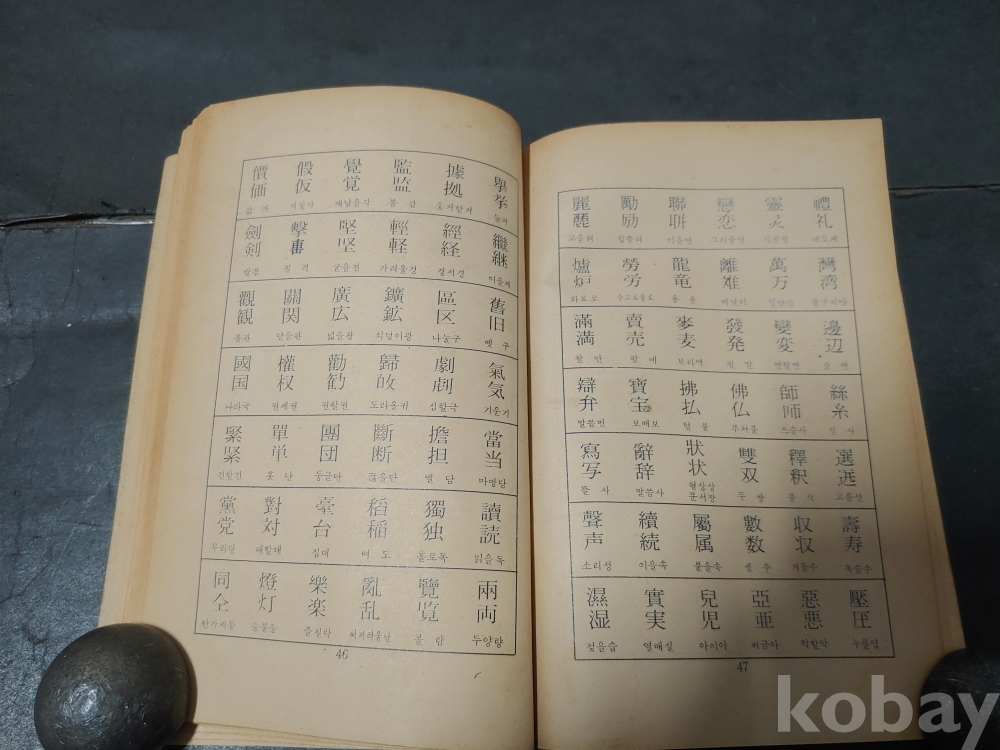 價 假 覺 監 據 擧
価 仮 覚 监 拠 挙
값가 거짓가 깨달을각 볼감 웅거할거 들거
劍 擊 堅 輕 經 繼
剣 坚 軽 経 継
칼검 칠격 굳을견 가벼울경 경서경 이을계
觀 關 廣 鑛 區 舊
観 関 広 鉱 区 旧
볼관 닫을관 넓을광 쇳덩이광 나눌구 옛구
國 權 勸 歸 劇 氣
国 权 勧 気
나라국 권세권 권할권 돌아올귀 심할극 기운기
緊 單 團 斷 擔 當
紧 单 団 断 担 当
긴할긴 홋단 둥글단 끊을단 멜담 마땅당
黨 對 臺 稻 獨 讀
党 対 台 稲 独 読
무리당 대할대 집대 벼도 홀로독 읽을독
同 燈 樂 亂 覽 兩
仝 灯 楽 乱 览 両
한가지동 등불등 즐길락 어지러울난 볼람 두양량
46
麗 勵 聯 戀 靈 禮
励 联 恋 灵 礼
고울려 힘쓸려 이을연 그리울연 신령령 예도예
爐 勞 龍 離 萬 灣
炉 労 竜 难 万 湾
화로로 수고로울로 용용 떠날리 일만만 물구비만
滿 賣 麥 發 變 邊
満 売 麦 発 変 辺
찰만 팔매 보리맥 필발 변할변 갓변
辯 寶 拂 佛 師 絲
弁 宝 払 仏 师 糸
말씀변 보배보 떨불 부처불 스승사 실사
寫 辭 狀 雙 釋 選
写 辞 状 双 釈 选
쓸사 말씀사 형상상 두쌍 풀석 고를선
문서장
聲 續 屬 數 収 壽
声 続 属 数 収 寿
소리성 이을속 붙을속 셀수 거둘수 목숨수
濕 實 兒 亞 惡 壓
湿 実 児 亜 悪 圧
젖을습 열매실 아이아 버금아 악할악 누를압
47
kobay